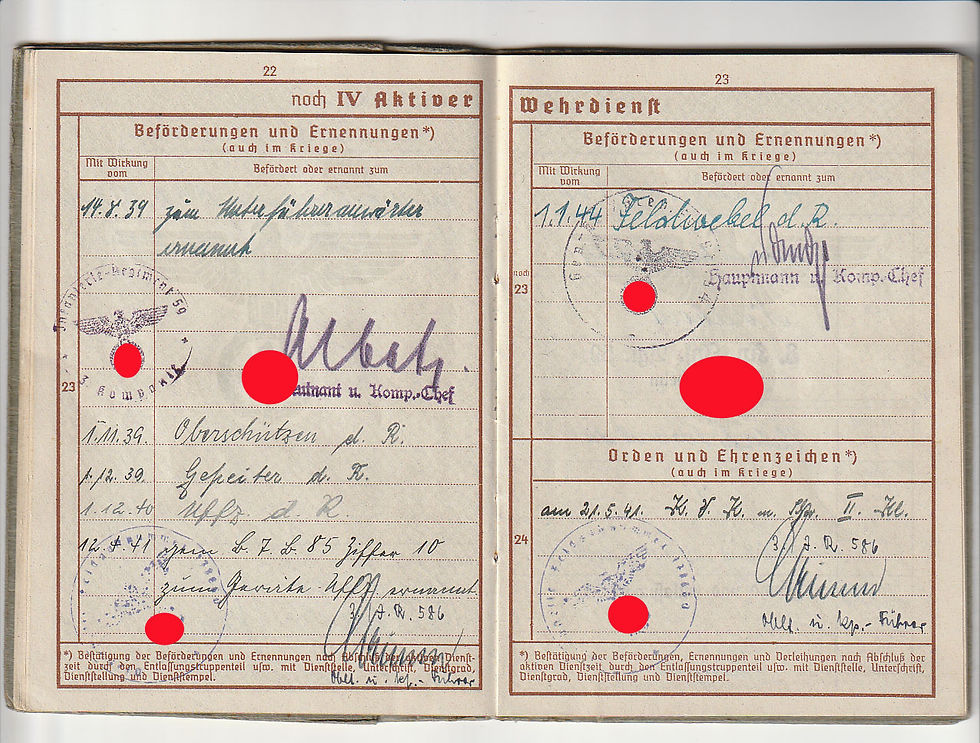 22
noch IV Aktiver
Beförderungen und Ernennungen*)
(auch im Kriege)
Mit Wirkung vom
Befördert oder ernannt zum
14.8.39 zum Unterführeranwärter
ernannt
Infanterie-Regiment 59
3. Kompanie
Albatz.
u. Komp.-Chef
23
1.11.39. Oberschützen d. R.
1.12.39. Gefreiter d. R.
1.12.40 Uffz d. R
12.4.41 gem B. 7. B. 85 Ziffer 10
zum Geräte-Uffz ernannt
3./J.R. 586
Oblt. u. Kp.-Führer
*) Bestätigung der Beförderungen und Ernennungen nach Dienst-
zeit durch den Entlassungstruppenteil usw. mit Dienststelle, Unterschrift, Dienstgrad,
Dienststellung und Dienststempel.
23
Wehrdienst
Beförderungen und Ernennungen*)
(auch im Kriege)
Mit Wirkung vom
Befördert oder ernannt zum
1.1.44 Feldwebel d. R.
noch 23
Hauptmann u. Komp.-Chef
Orden und Ehrenzeichen*)
(auch im Kriege)
am 21.5.41. K. V. K. m. Schw. II. Kl.
24
3./J.R. 586
Oblt. u. Kp.-Führer
*) Bestätigung der Beförderungen, Ernennungen und Verleihungen nach Abschluß der
aktiven Dienstzeit durch den Entlassungstruppenteil usw. mit Dienststelle, Unterschrift,
Dienstgrad, Dienststellung und Dienststempel.